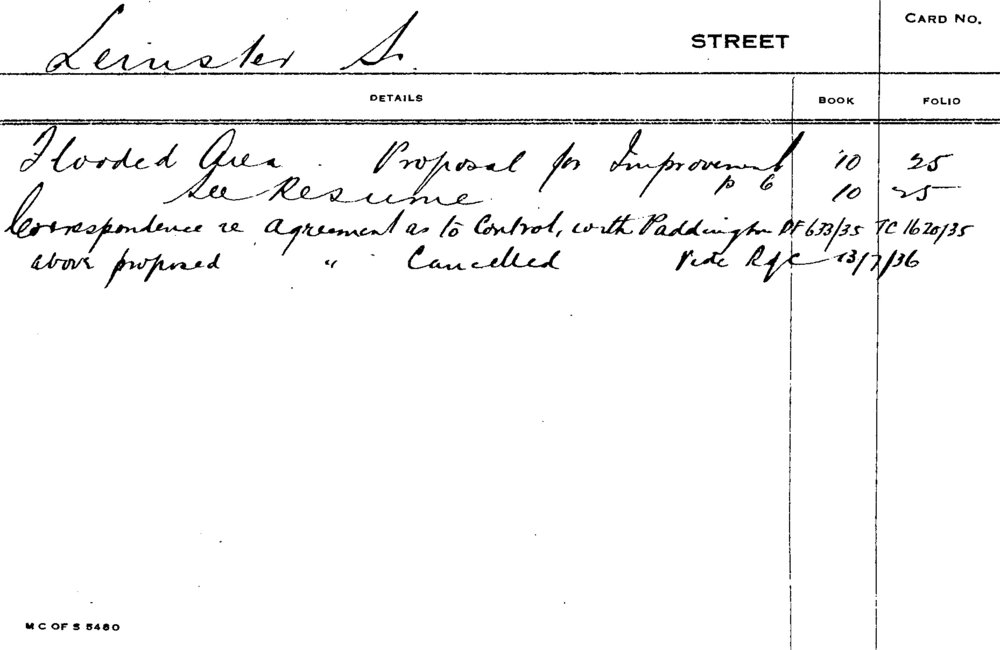 Leinster St. STREET CARD NO.
DETAILS BOOK FOLIO
Flooded Area. Proposal for Improvement 10 25
See Resume p 6 10 25
Correspondence re agreement as to Control, with Paddington DF 673/35 TC 1620/35
above proposed " Cancelled Vide 13/7/36
M C OF S 5480